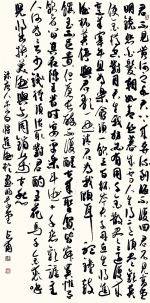 君不見黃河之水天上來奔流到海不復回君不見高堂
明鏡悲白髮朝如青絲暮成雪人生得意須盡歡莫使金樽
空對月天生我材必有用千金散盡還復來烹羊宰牛且為樂會須一飲三百
杯岑夫子丹丘生將進酒杯莫停與君歌一曲請君為我傾耳聽鐘鼓
饌玉不足貴但願長醉不願醒古來聖賢皆寂寞惟有飲者留其
名陳王昔時宴平樂斗酒十千恣歡謔主
人何為言少錢徑須沽取對君酌五花馬千金裘呼
兒將出換美酒與爾同銷萬古愁